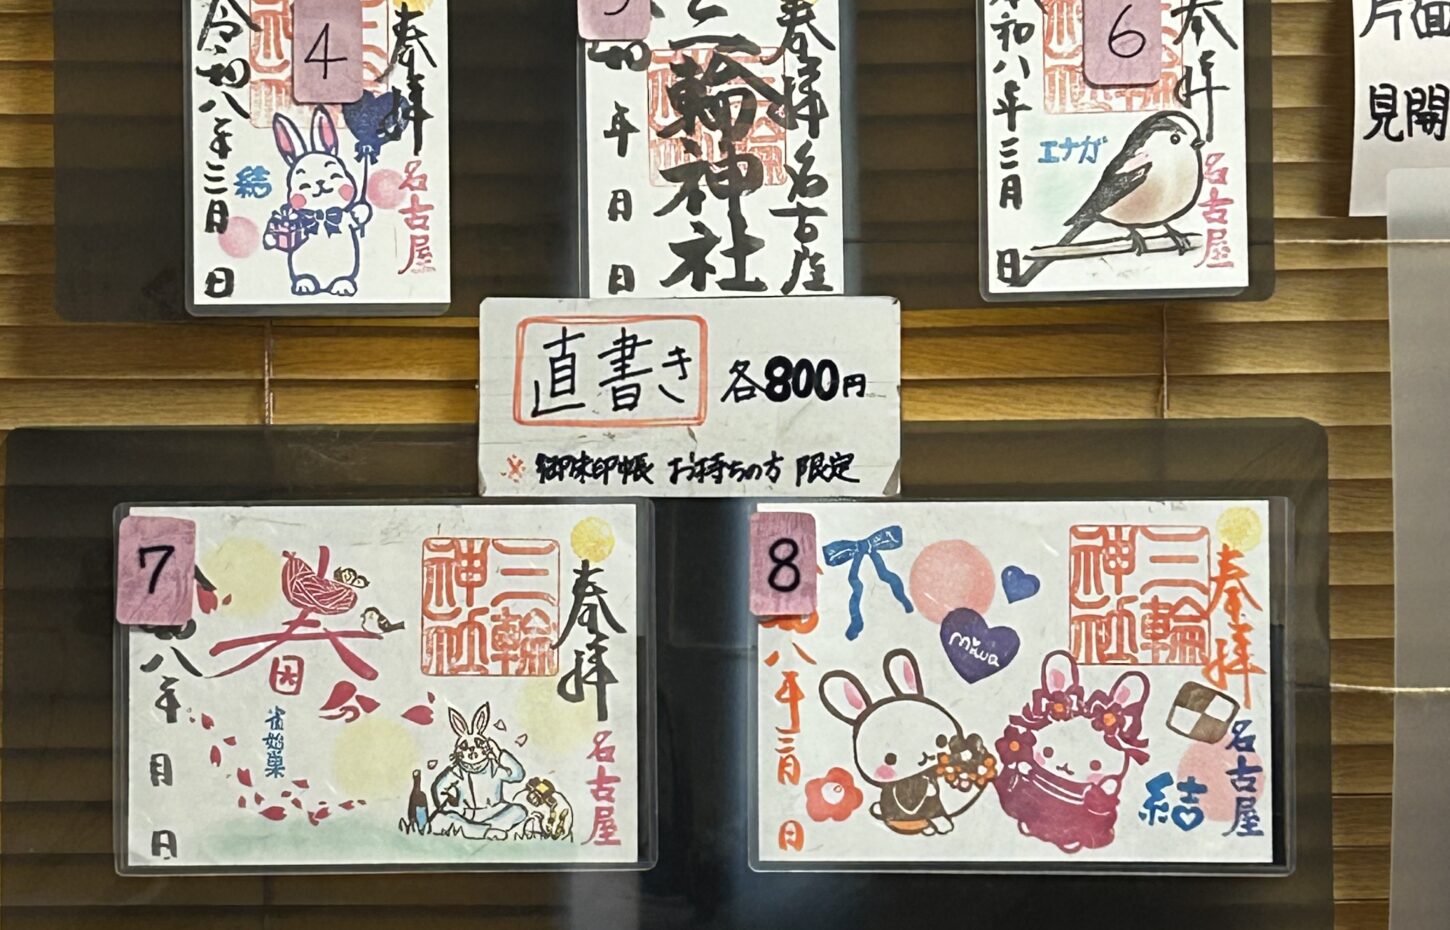 4
奉拝
名古屋
結
令和八年三月
日
奉拝 名古屋
三輪神社
年 月 日
6
奉拝
名古屋
エナガ
令和八年三月
日
片面
見開
直書き 各800円
※ 御朱印帳 お持ちの方 限定
7
奉拝
名古屋
三輪
神社
春分
雀始巣
和八年 月 日
8
奉拝
名古屋
三輪
神社
miwa
結
八年三月
日